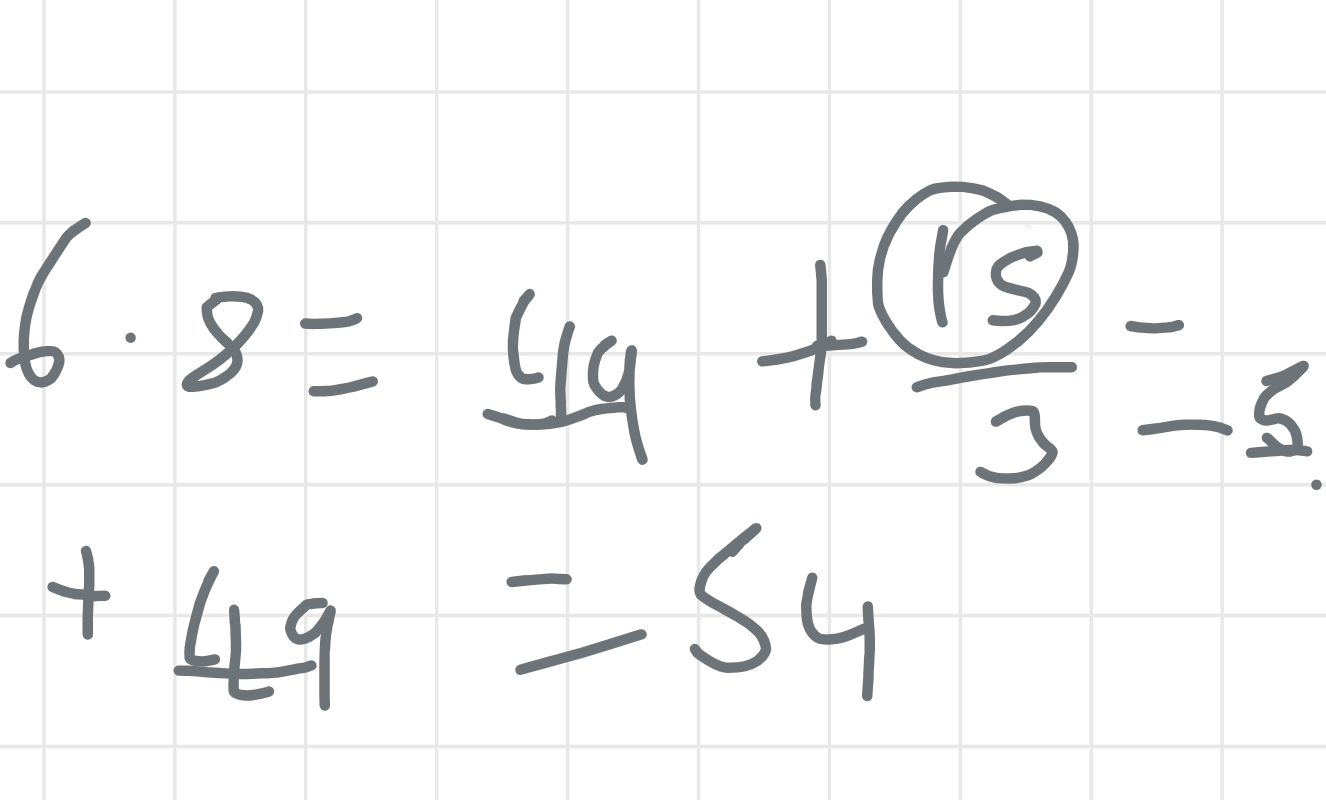 6 · 8 = 49 + 15/3 = 5.
+ 49 = 54